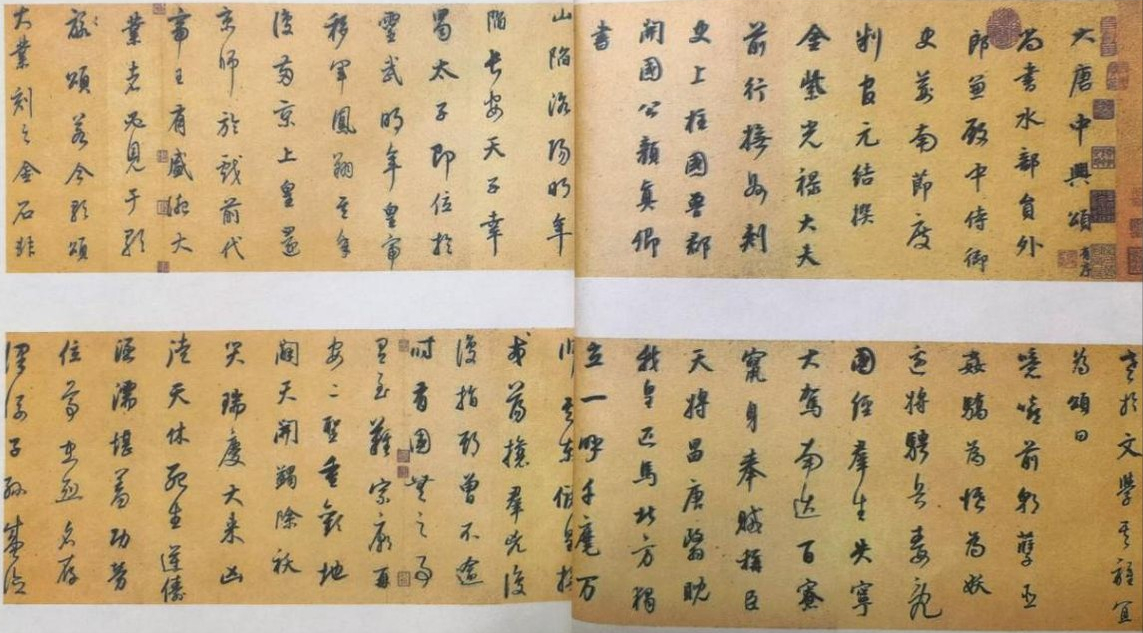 大唐中興頌 有序
尚書水部負外
郎兼殿中侍御
史荊南節度
判官元結撰
金紫光祿大夫
前行撫州刺
史上柱國魯郡
開國公顏真卿
書
山陷洛陽明年
陷長安天子幸
蜀太子即位於
靈武明年皇帝
移軍鳳翔其年
復兩京上皇還
京師於戲前代
帝王有盛德大
業者必見于歌
頌若今歌頌
大業刻之金石非
老於文學其誰宜
為頌曰
噫嘻前朝孽臣
姦驕為惛為妖
邊將騁兵毒亂
國經羣生失寧
大駕南巡百寮
竄身奉賊稱臣
天將昌唐繄睨
我皇匹馬北方獨
立一呼千麾万
師其東儲皇撫
戎蕩攘羣兇復
復指期曾不逾
時有國無之事
有至難宗廟再
安二聖重歡地
闢天開蠲除祅
災瑞慶大來凶
徒天休死生逆儔
涵濡堪羞功勞
位尊忠烈名存
澤流子孫盛德